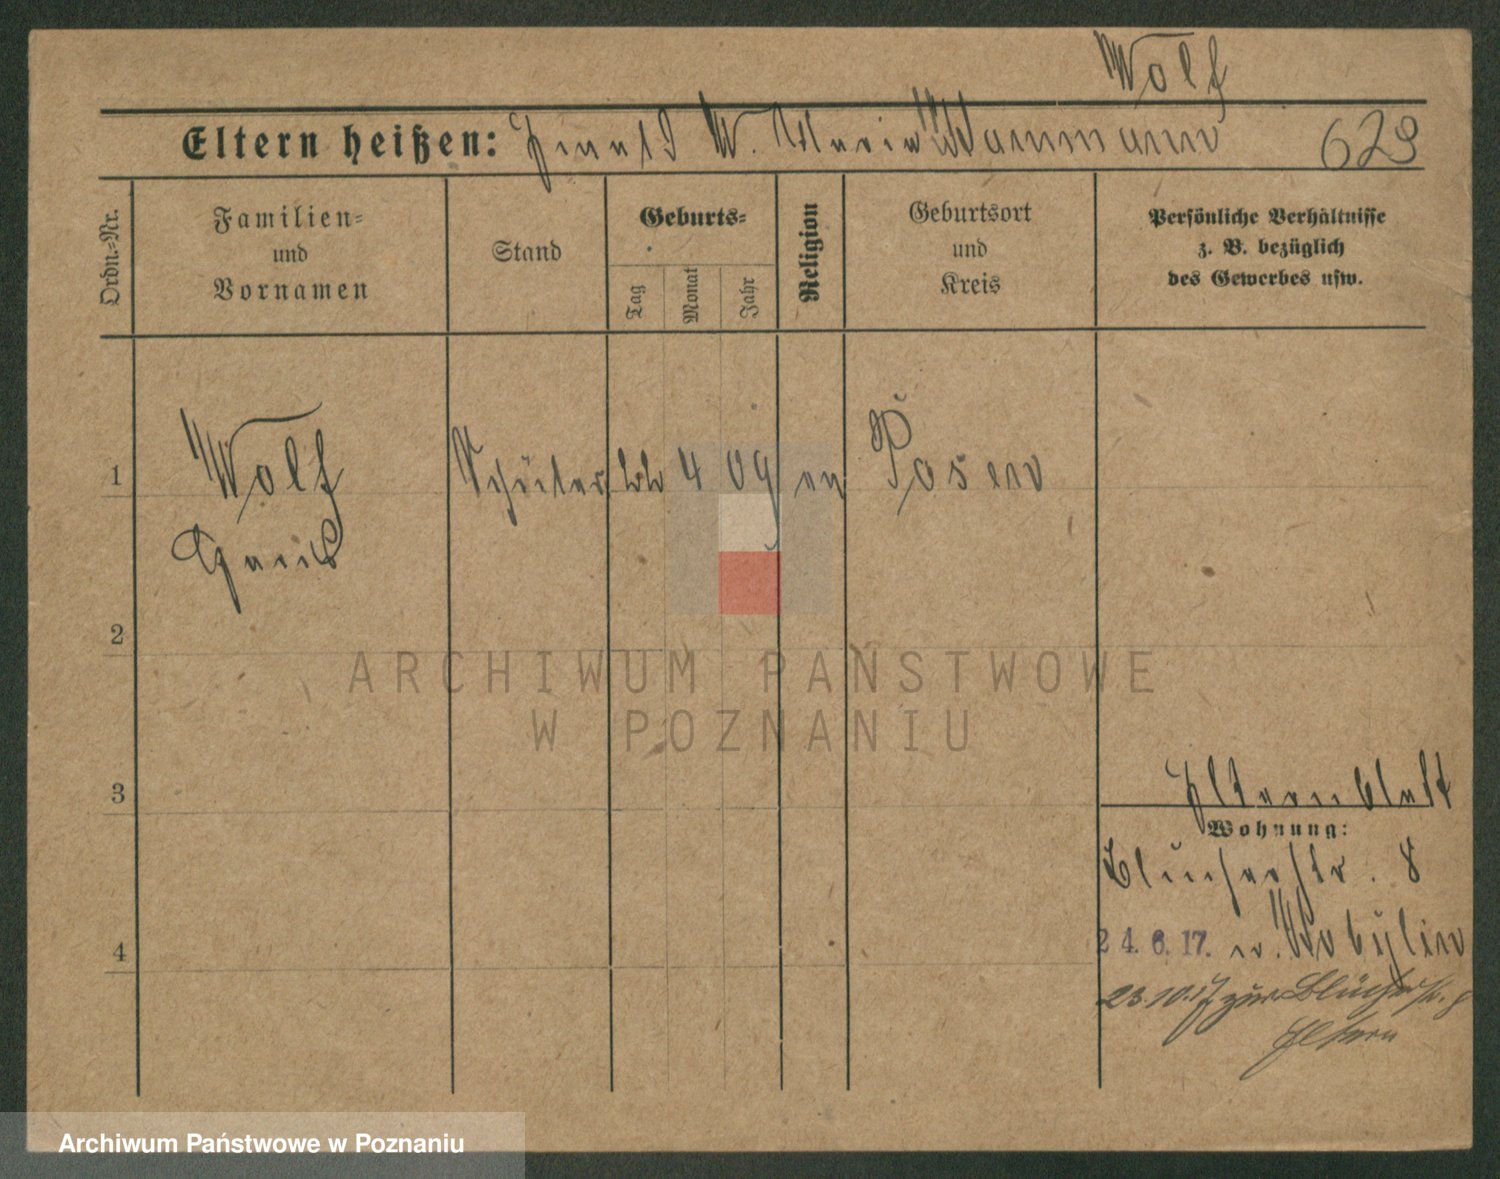 Wolf
Eltern heißen: W. Marie 629
Ordn.=Nr.
Familien=
und
Vornamen
Stand
Geburts=
Tag
Monat
Jahr
Religion
Geburtsort
und
Kreis
Persönliche Verhältnisse
z. B. bezüglich
des Gewerbes usw.
1 Wolf Schüler 4 09 ev Posen
Hans
2
3
4
Elternblatt
Wohnung:
Blücherstr. 8
24.6.17. n. Kobylin
23.10.17 zur Blücherstr. 8
Eltern
ARCHIWUM PAŃSTWOWE
W POZNANIU
Archiwum Państwowe w Poznaniu